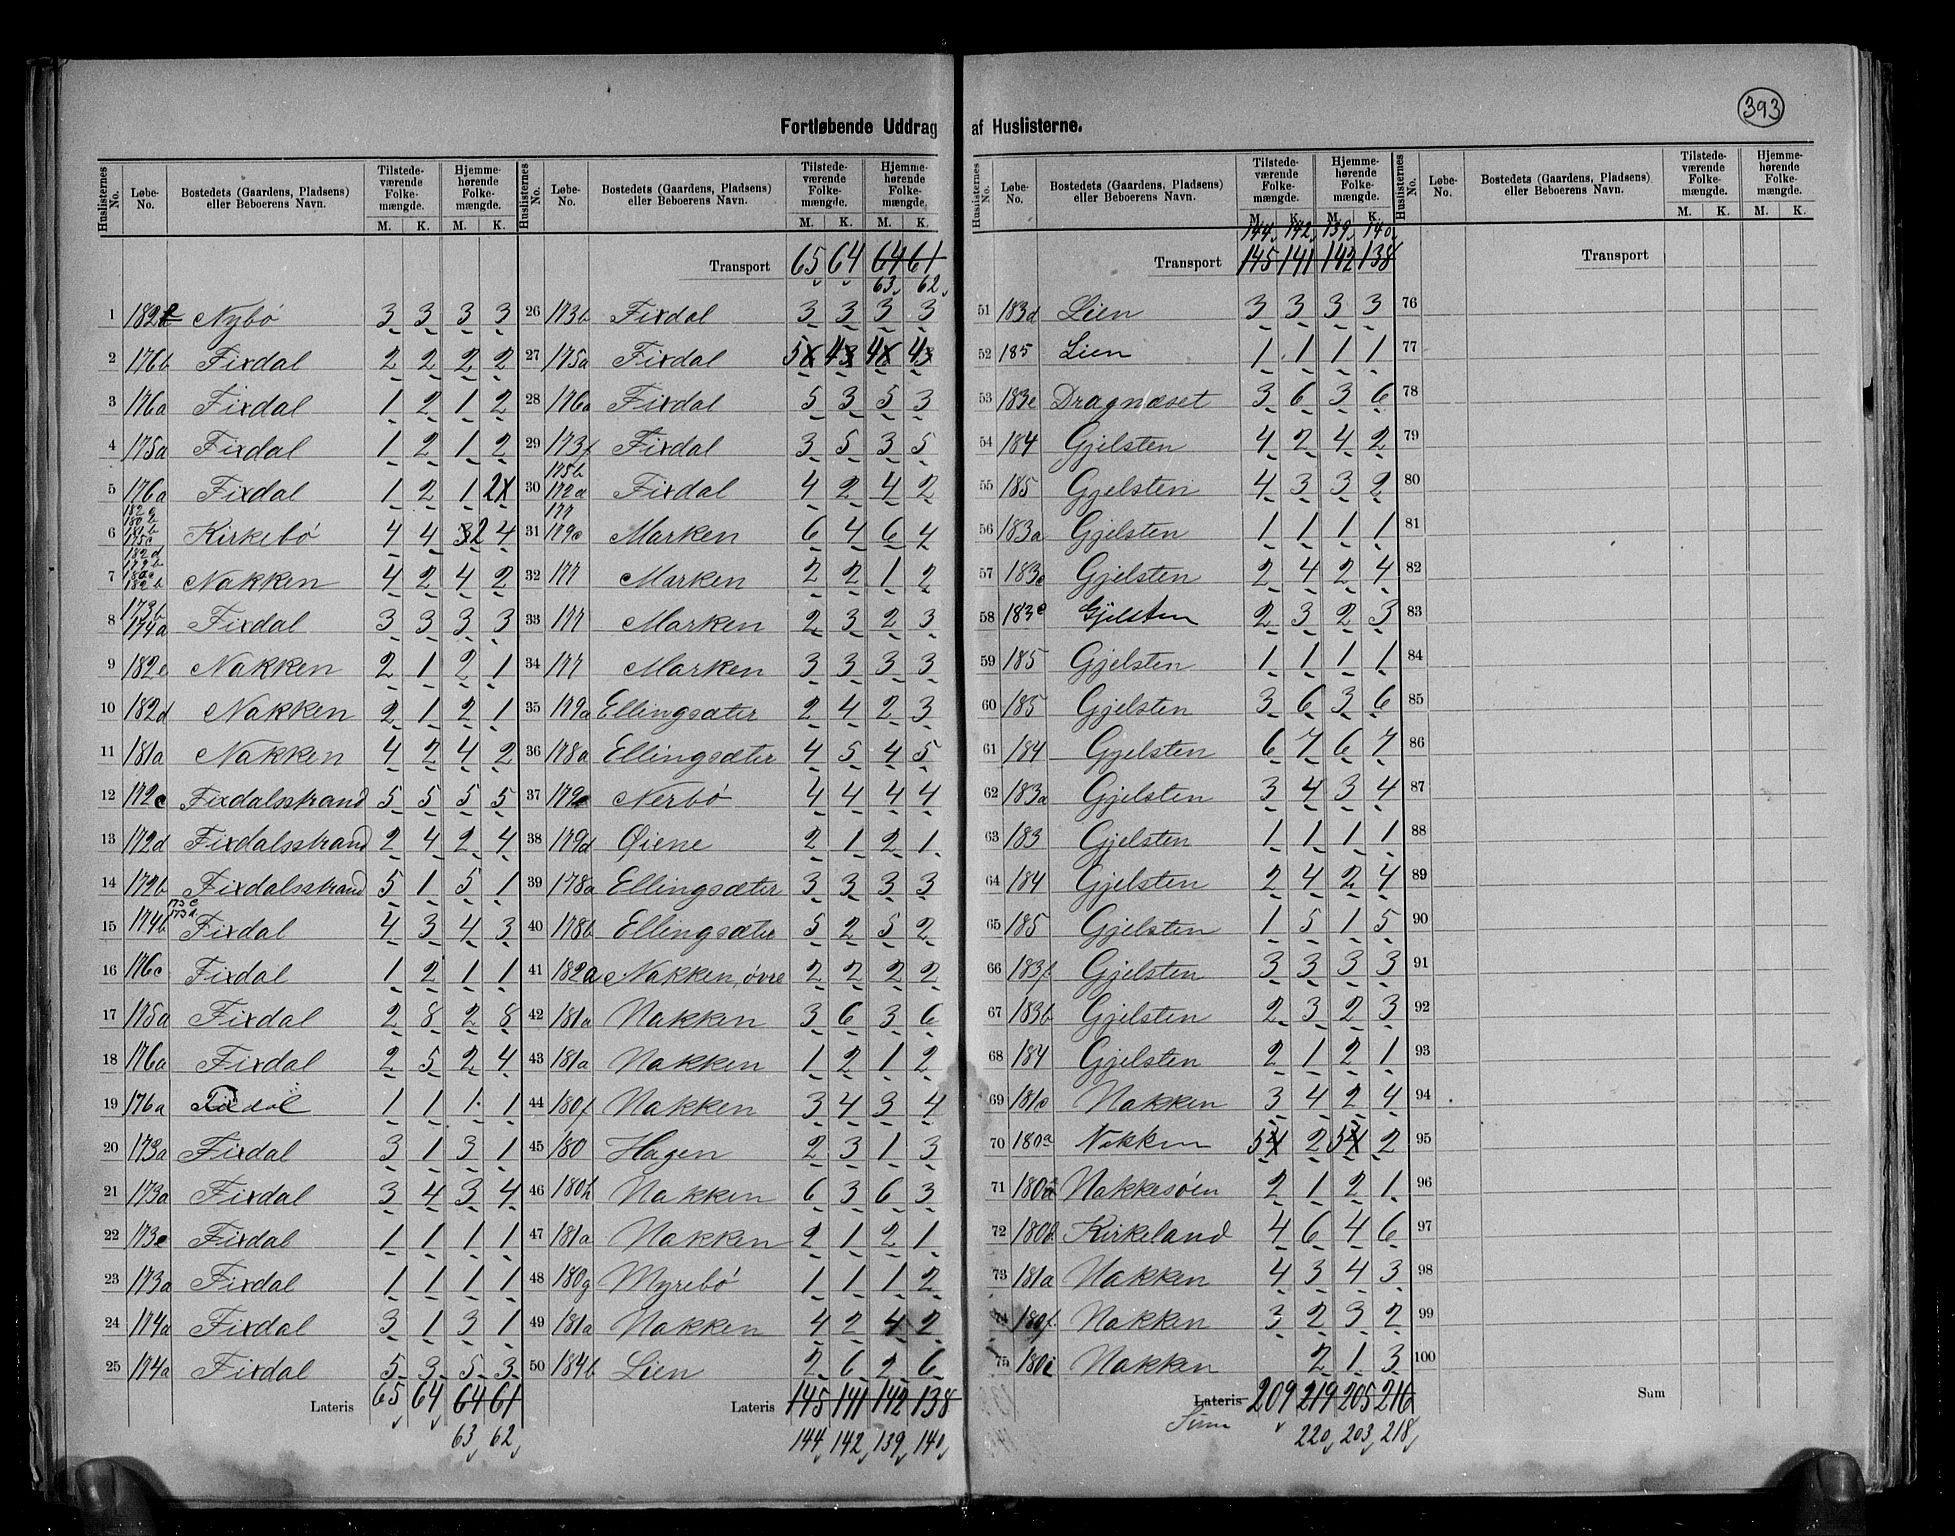 393
Fortløbende Uddrag af Huslisterne.
Huslisternes No. Løbe-No. Bostedets (Gaardens, Pladsens) eller Beboerens Navn. Tilstedeværende Folkemængde. M. K. Hjemmehørende Folkemængde. M. K.
1 182f Nybö 3 3 3 3
2 176b Fixdal 2 2 2 2
3 176a Fixdal 1 2 1 2
4 175a Fixdal 1 2 1 2
5 176a Fixdal 1 2 1 2
6 Kirkebö 4 4 2 4
7 Nakken 4 2 4 2
8 173b 174a Fixdal 3 3 3 3
9 182c Nakken 2 1 2 1
10 182d Nakken 2 1 2 1
11 181a Nakken 4 2 4 2
12 172c Fixdalsstrand 5 5 5 5
13 172d Fixdalsstrand 2 4 2 4
14 172b Fixdalsstrand 5 1 5 1
15 174b 173c 173d Fixdal 4 3 4 3
16 176c Fixdal 1 2 1 1
17 175a Fixdal 2 8 2 8
18 176a Fixdal 2 5 2 4
19 176a Fixdal 1 1 1 1
20 173a Fixdal 3 1 3 1
21 173a Fixdal 3 4 3 4
22 173e Fixdal 1 1 1 1
23 173a Fixdal 1 1 1 1
24 174a Fixdal 3 1 3 1
25 174a Fixdal 5 3 5 3
Lateris 65 64 64 61
63 62
Huslisternes No. Løbe-No. Bostedets (Gaardens, Pladsens) eller Beboerens Navn. Tilstedeværende Folkemængde. M. K. Hjemmehørende Folkemængde. M. K.
Transport 65 64 64 61
63 62
26 173b Fixdal 3 3 3 3
27 175a Fixdal 5 4 4 4
28 176a Fixdal 5 3 5 3
29 173f Fixdal 3 5 3 5
30 175b 172a Fixdal 4 2 4 2
31 177 179c Marken 6 4 6 4
32 177 Marken 2 2 1 2
33 177 Marken 2 3 2 3
34 177 Marken 3 3 3 3
35 179a Ellingsæter 2 4 2 3
36 178a Ellingsæter 4 5 4 5
37 179e Nerbö 4 4 4 4
38 179d Øiene 2 1 2 1
39 178a Ellingsæter 3 3 3 3
40 178b Ellingsæter 5 2 5 2
41 182a Nakken, övre 2 2 2 2
42 181a Nakken 3 6 3 6
43 181a Nakken 1 2 1 2
44 180f Nakken 3 4 3 4
45 180 Hagen 2 3 1 3
46 180h Nakken 6 3 6 3
47 181a Nakken 2 1 2 1
48 180g Myrebö 1 1 1 2
49 181a Nakken 4 2 4 2
50 184b Lien 2 6 2 6
Lateris 145 141 142 138
144 142 139 140
Huslisternes No. Løbe-No. Bostedets (Gaardens, Pladsens) eller Beboerens Navn. Tilstedeværende Folkemængde. M. K. Hjemmehørende Folkemængde. M. K.
144 142 139 140
Transport 145 141 142 138
51 183d Lien 3 3 3 3
52 185 Lien 1 1 1 1
53 183e Dragnæset 3 6 3 6
54 184 Gjelsten 4 2 4 2
55 185 Gjelsten 4 3 3 2
56 183a Gjelsten 1 1 1 1
57 183c Gjelsten 2 4 2 4
58 183c Gjelsten 2 3 2 3
59 185 Gjelsten 1 1 1 1
60 185 Gjelsten 3 6 3 6
61 184 Gjelsten 6 7 6 7
62 183a Gjelsten 3 4 3 4
63 183 Gjelsten 1 1 1 1
64 184 Gjelsten 2 4 2 4
65 185 Gjelsten 1 5 1 5
66 183f Gjelsten 3 3 3 3
67 183b Gjelsten 2 3 2 3
68 184 Gjelsten 2 1 2 1
69 Nakken 3 4 2 4
70 180a Nakken 5 2 5 2
71 Nakkesöen 2 1 2 1
72 Kirkeland 4 6 4 6
73 181a Nakken 4 3 4 3
74 180f Nakken 3 2 3 2
75 180i Nakken 2 1 3
Lateris 209 219 205 216
Sum 220 203 218
Huslisternes No. Løbe-No. Bostedets (Gaardens, Pladsens) eller Beboerens Navn. Tilstedeværende Folkemængde. M. K. Hjemmehørende Folkemængde. M. K.
Transport
76
77
78
79
80
81
82
83
84
85
86
87
88
89
90
91
92
93
94
95
96
97
98
99
100
Sum